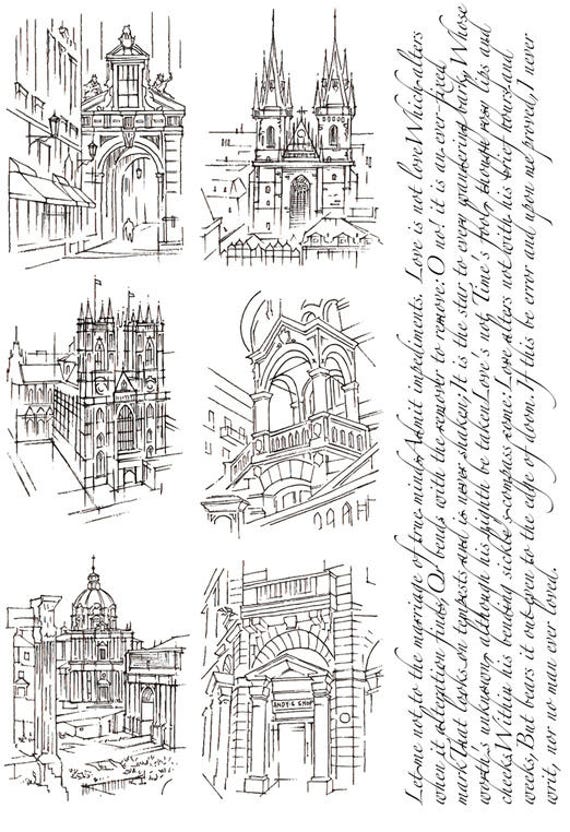 ANDY'S SHOP
Let me not to the marriage of true minds Admit impediments. Love is not love Which alters
when it alteration finds, Or bends with the remover to remove: O no! it is an ever-fixed
mark That looks on tempests and is never shaken; It is the star to every wandering bark, Whose
worth's unknown, although his highth be taken Love's not Time's fool, though rosy lips and
cheeks Within his bending sickle's compass come; Love alters not with his brief hours and
weeks, But bears it out even to the edge of doom. If this be error and upon me proved, I never
writ, nor no man ever loved.